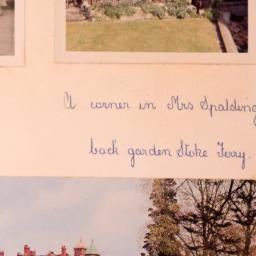 A corner in Mrs Spalding
back garden Stoke Ferry.